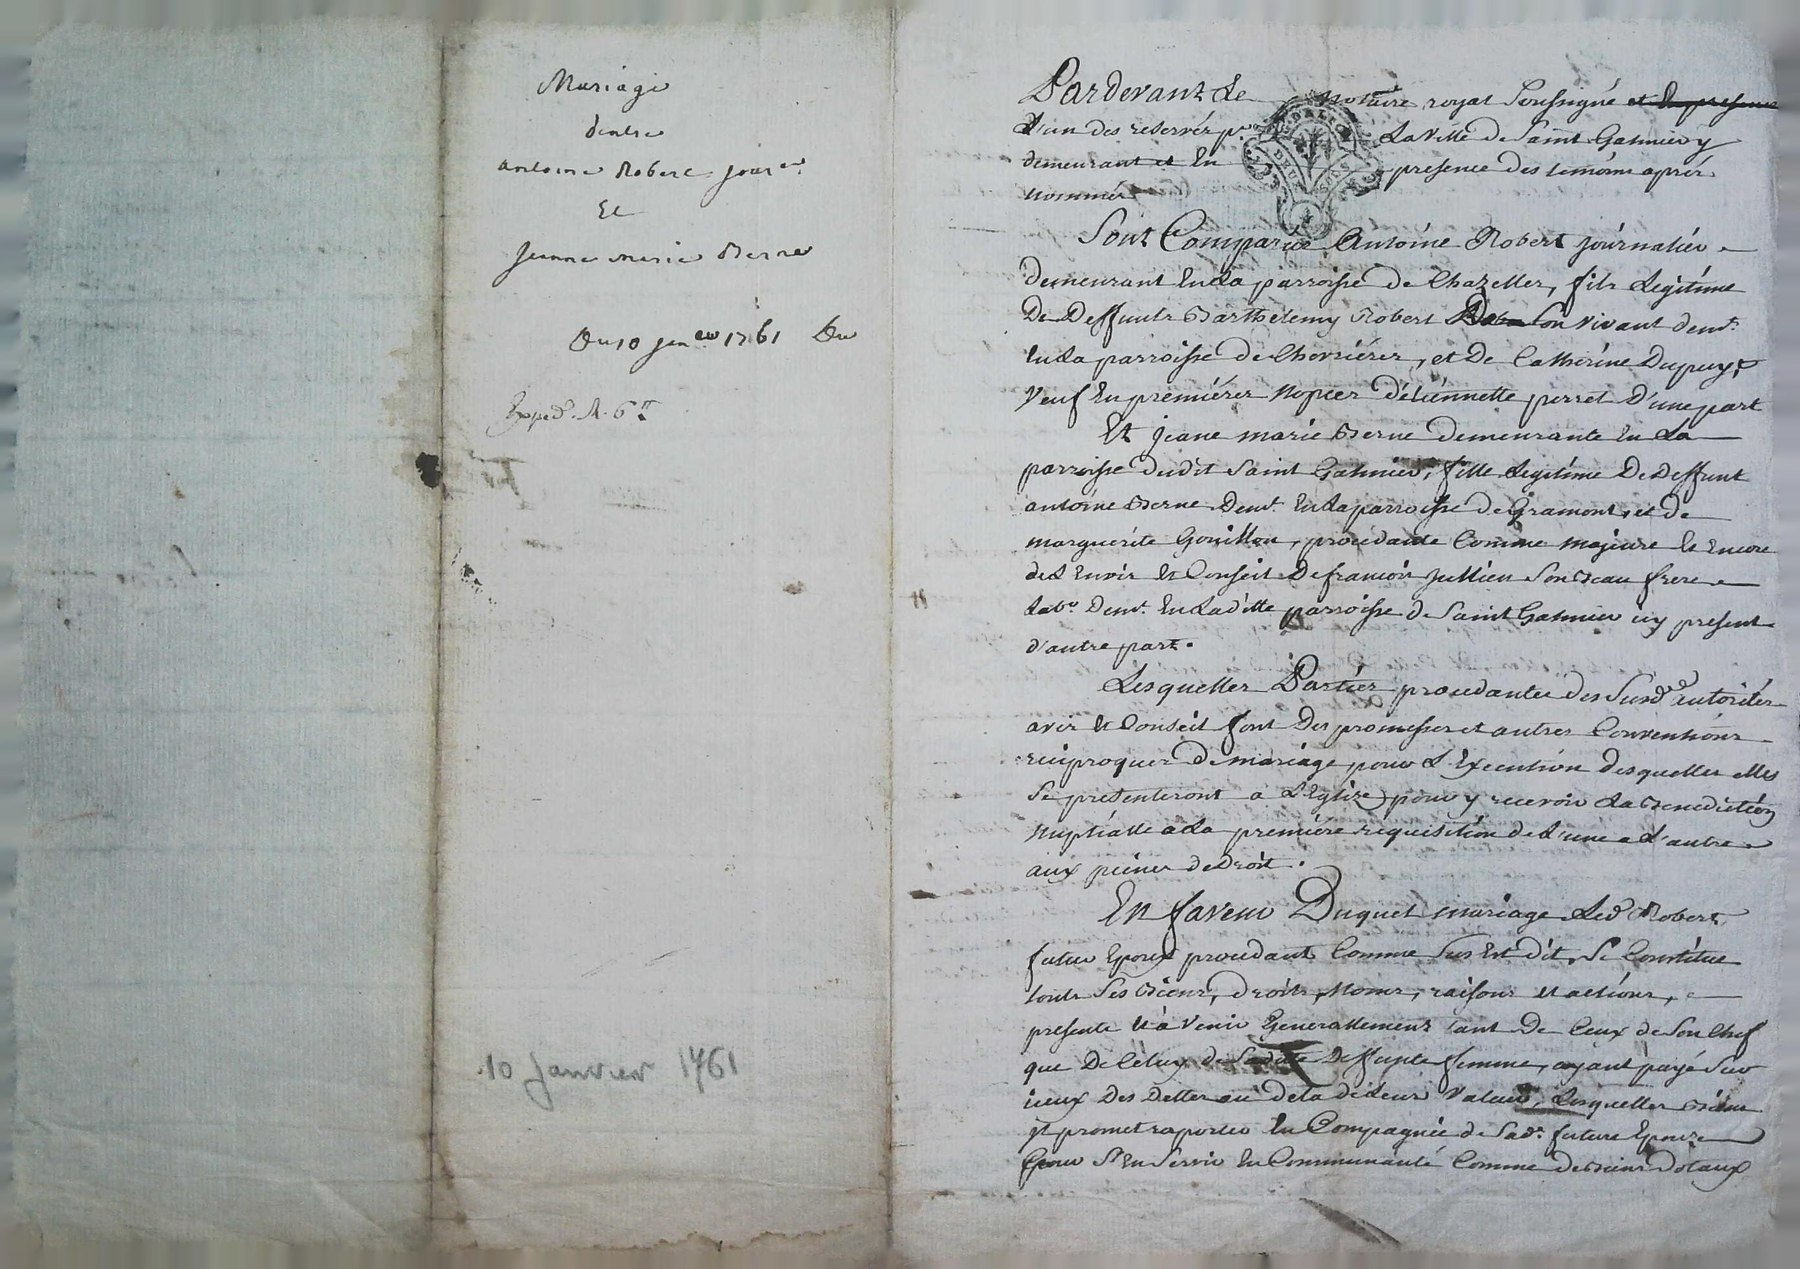 Mariage
d'entre
antoine Robert jour.er
Et
jeanne marie Berne
Du 10 jan.er 1761 Du
Exped. R. 6
10 Janvier 1761
Pardevant Le notaire royal soussigné et En presence
L'un des reservés pr La ville de Saint Galmier y
demeurant et En presence des temoins aprés
nommés
Sont Comparus Antoine Robert journalier
demeurant En La parroisse de Chazelles, fils Legitime
De Deffunts Barthelemy Robert son vivant demt.
En La parroisse de Chevriéres, et De Catherine Dupuy,
Veuf En premiéres Nopces d'étiénnette perret D'une part
Et jeane marie Berne demeurante En La
parroisse dudit Saint Galmier, fille Legitime De Deffunt
antoine Berne Demt. En La parroisse de Gramont, et de
marguérite Gouillon, procédante Comme majeure Et Encore
de L'avis Et Conseil De francois jullien Son Beau frere
Labr. Demt. En Laditte parroisse de Saint Galmier icy present
d'autre part.
Lesquelles Parties procedantes des Susd. autorités
avis Et Conseil font Des promesses et autres Conventions
reciproques De mariage pour L'Execution desquelles elles
Se presenteront a L'Eglize pour y recevoir La Benediction
Nuptialle a La premiére requisition de L'une a L'autre
aux peines de Droit.
En faveur Duquel mariage Led. Robert
futur Epoux procedant Comme Sus Est dit, Se Constitue
touts Ses Biens, droits, Noms, raisons Et actions,
presents Et à Venir Generallement tant De Ceux de Son Chef
que De Céluy de Sa ditte Deffunte femme, ayant payé Sur
iceux Des Dettes au dela de Leur Valeur, Lesquelles Biens
jl promet raporter En Compagnie de Sad. future Epouze
pour S'En Servir En Communauté Comme de Biens Dotaux